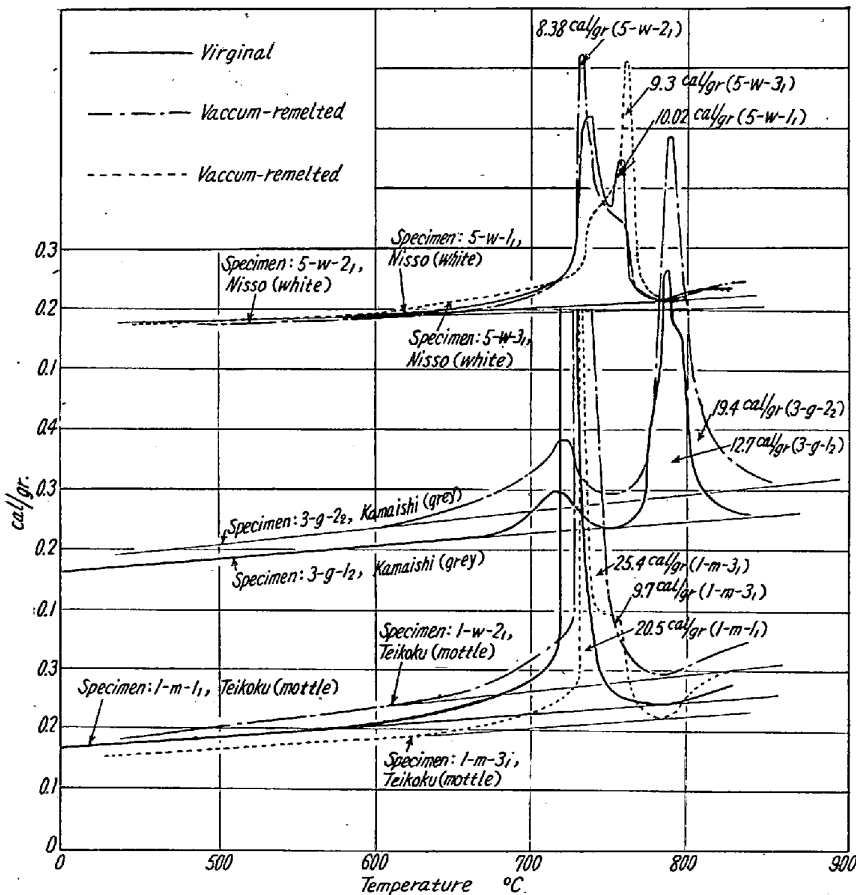 Virginal
Vaccum-remelted
Vaccum-remelted
8.38 cal/gr (5-w-2₁)
9.3 cal/gr (5-w-3₁)
10.02 cal/gr (5-w-1₁)
Specimen: 5-w-2₁,
Nisso (white)
Specimen: 5-w-1₁,
Nisso (white)
Specimen: 5-w-3₁,
Nisso (white)
0.3
0.2
0.1
0.4
0.3
0.2
0.1
0.3
0.2
0.1
0
cal/gr.
19.4 cal/gr (3-g-2₂)
12.7 cal/gr (3-g-1₂)
Specimen: 3-g-2₂, Kamaishi (grey)
Specimen: 3-g-1₂, Kamaishi (grey)
25.4 cal/gr (1-m-3₁)
9.7 cal/gr (1-m-3₁)
20.5 cal/gr (1-m-1₁)
Specimen: 1-w-2₁,
Teikoku (mottle)
Specimen: 1-m-1₁, Teikoku (mottle)
Specimen: 1-m-3₁,
Teikoku (mottle)
0 500 600 700 800 900
Temperature °C.